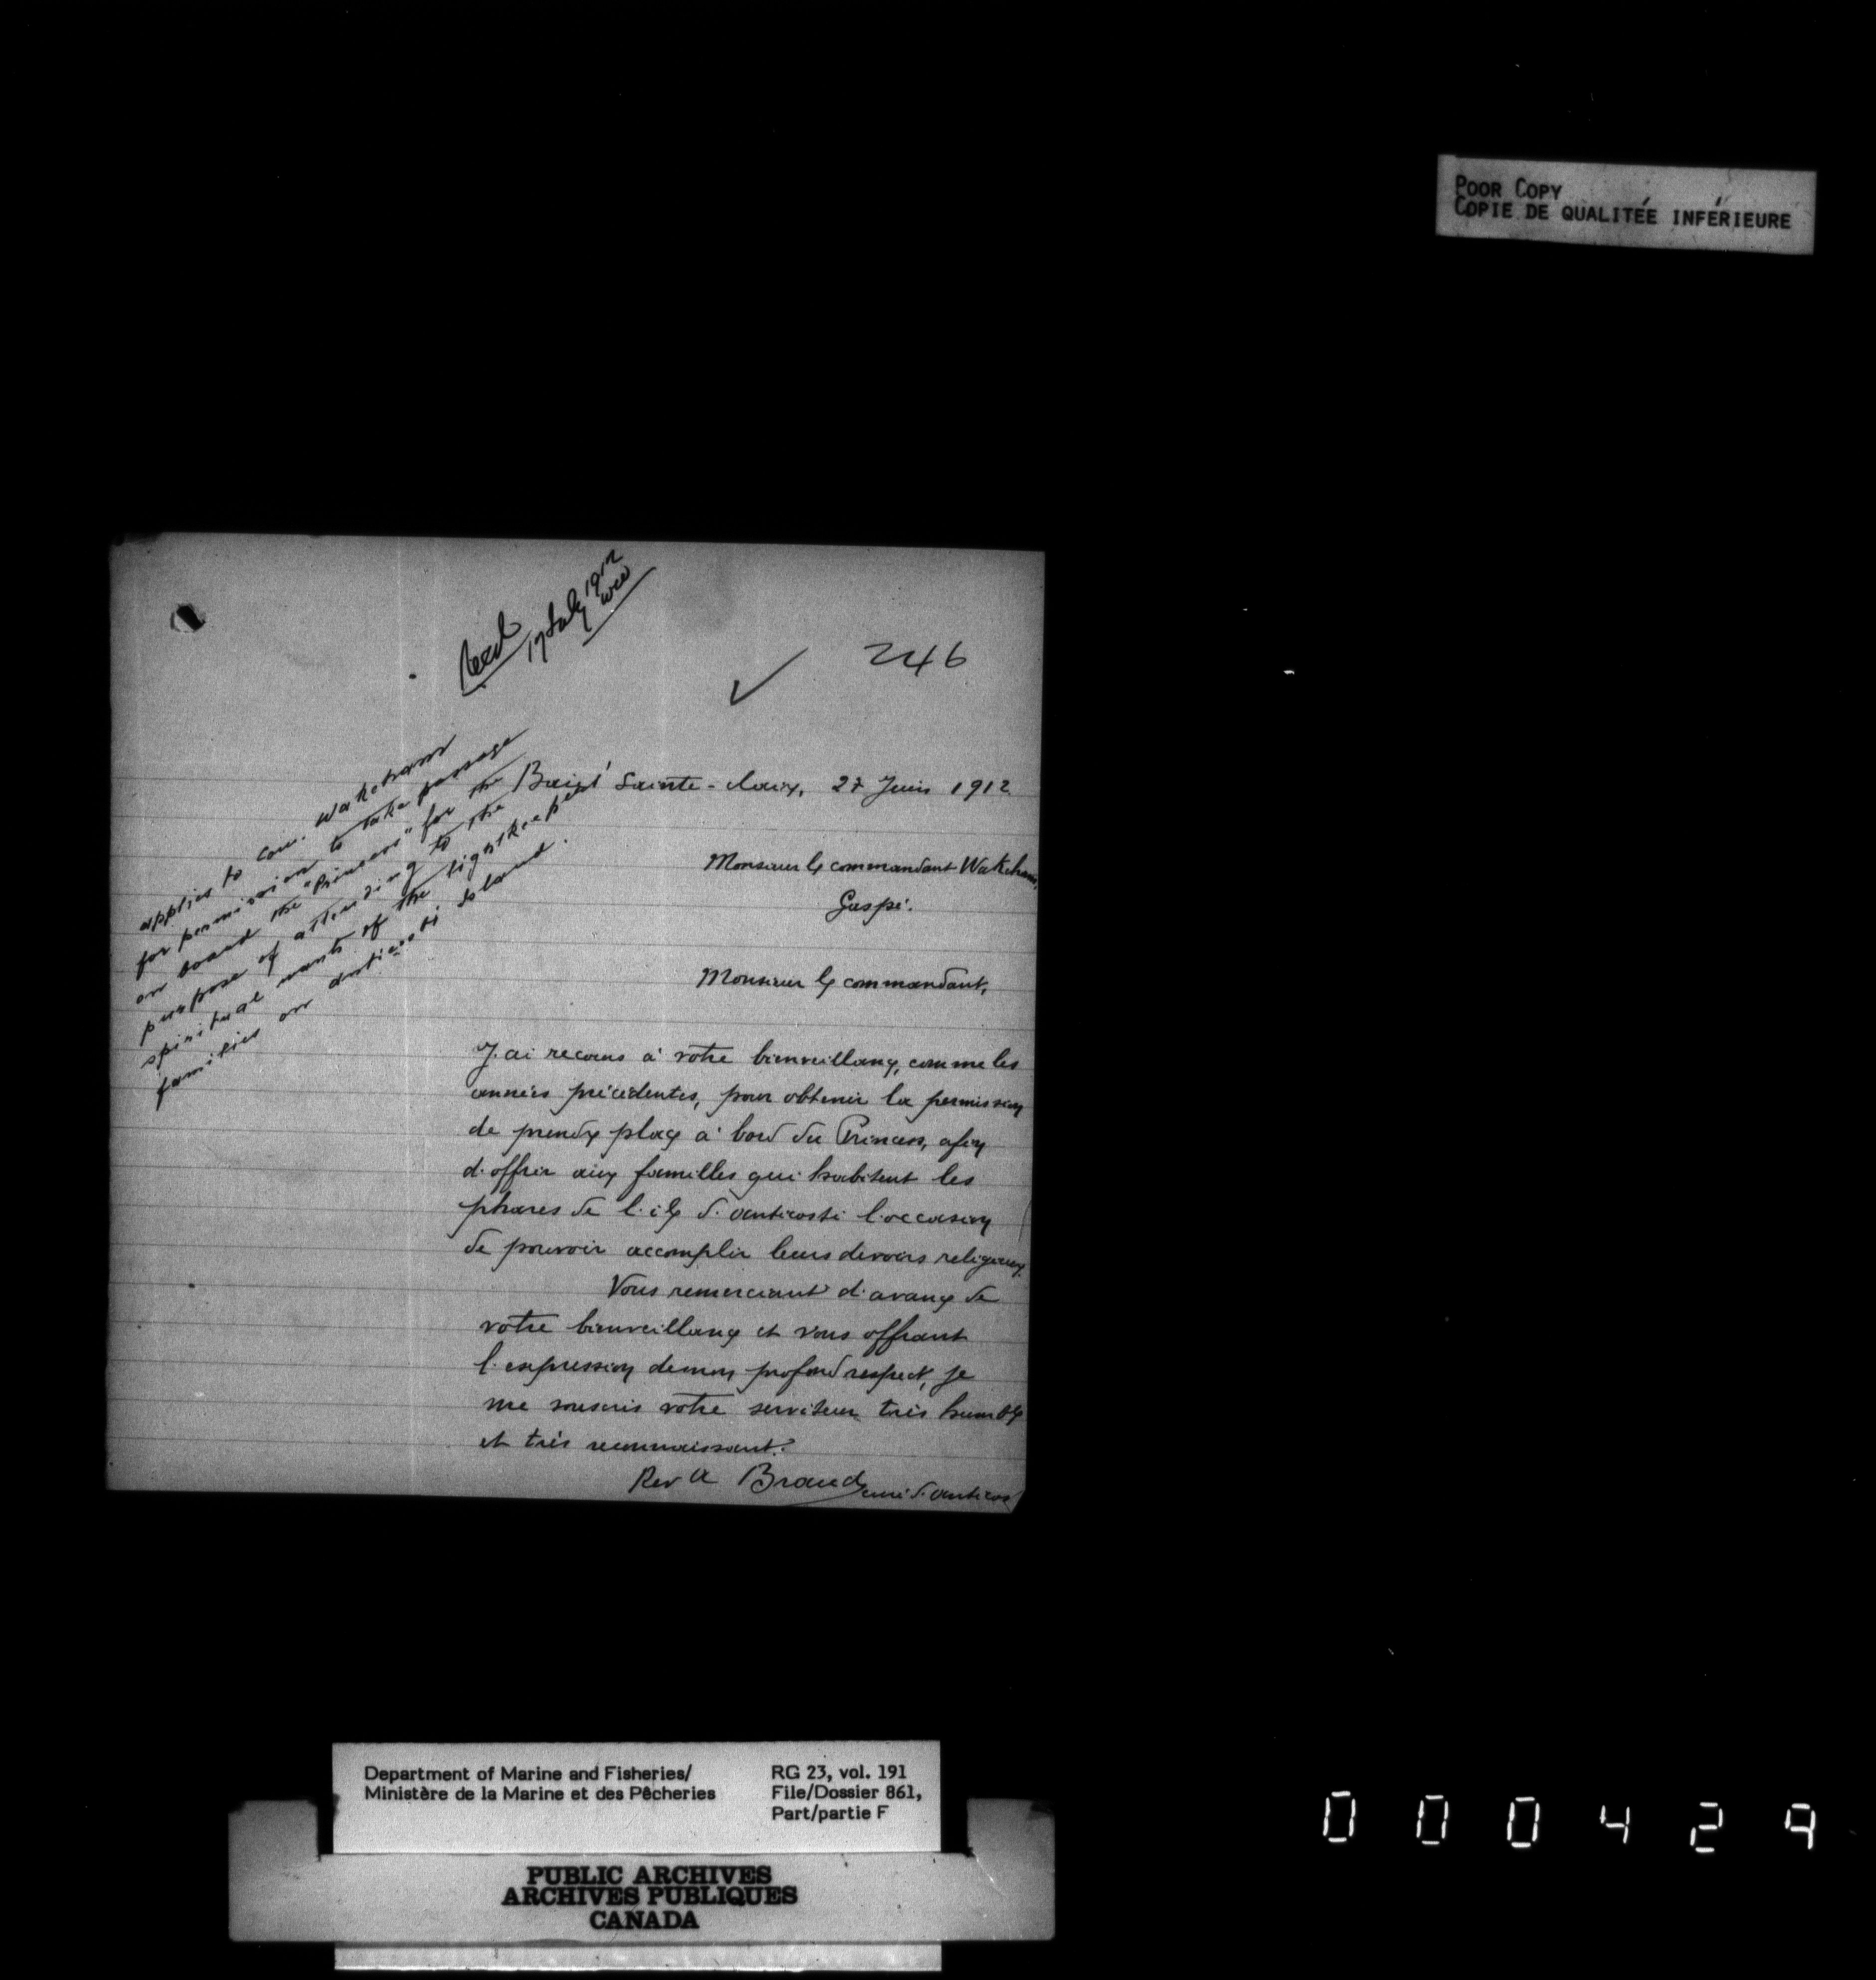 POOR COPY
COPIE DE QUALITÉE INFÉRIEURE
Recd
17 July 1912
246
applies to Com. Wakeham
for permission to take passage
on board the "Princess" for the
purpose of attending to the
spiritual wants of the lightkeepers'
families on Anticosti Island.
Sainte-Claire, 27 Juin 1912
Monsieur le commandant Wakeham,
Gaspé.
Monsieur le commandant,
J'ai recours à votre bienveillance, comme les
années précédentes, pour obtenir la permission
de prendre place à bord du Princess, afin
d'offrir aux familles qui habitent les
phares de l'ile d'anticosti l'occasion
de pouvoir accomplir leurs devoirs religieux.
Vous remerciant d'avance de
votre bienveillance et vous offrant
l'expression de mon profond respect, je
me souscris votre serviteur très humble
et très reconnaissant.
Rev A Braud
curé d'anticos
Department of Marine and Fisheries/
Ministère de la Marine et des Pêcheries
RG 23, vol. 191
File/Dossier 861,
Part/partie F
PUBLIC ARCHIVES
ARCHIVES PUBLIQUES
CANADA
000429